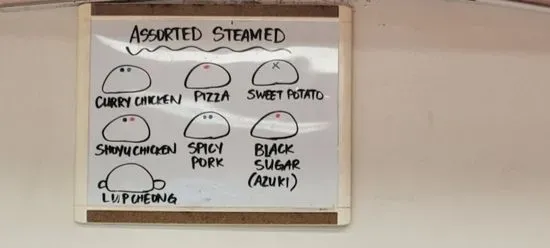 ASSORTED STEAMED
CURRY CHICKEN PIZZA SWEET POTATO
SHOYU CHICKEN SPICY PORK BLACK SUGAR (AZUKI)
LUP CHEONG